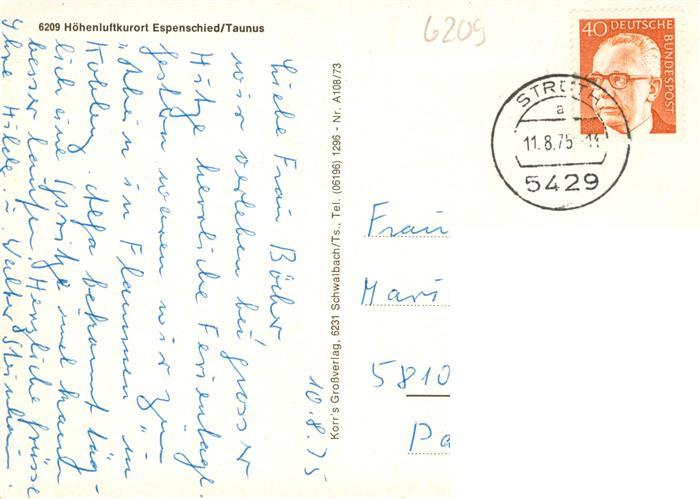 6209 Höhenluftkurort Espenschied/Taunus
6209
40 DEUTSCHE
BUNDESPOST
STRÜTH
a
11.8.75-11
5429
10.8.75
Liebe Frau Böhr
wir verleben bei grosser
Hitze herrliche Ferientage.
Gestern waren wir zum
"Rhein in Flammen" in
Koblenz. Alfa bekommt täg-
lich eine Spritze und kann
besser laufen. Herzliche Grüsse
Ihre Hilde u. Walter
Korr's Großverlag, 6231 Schwalbach/Ts., Tel. (06196) 1296 - Nr. A108/73
Frau
Mari
5810
Pa